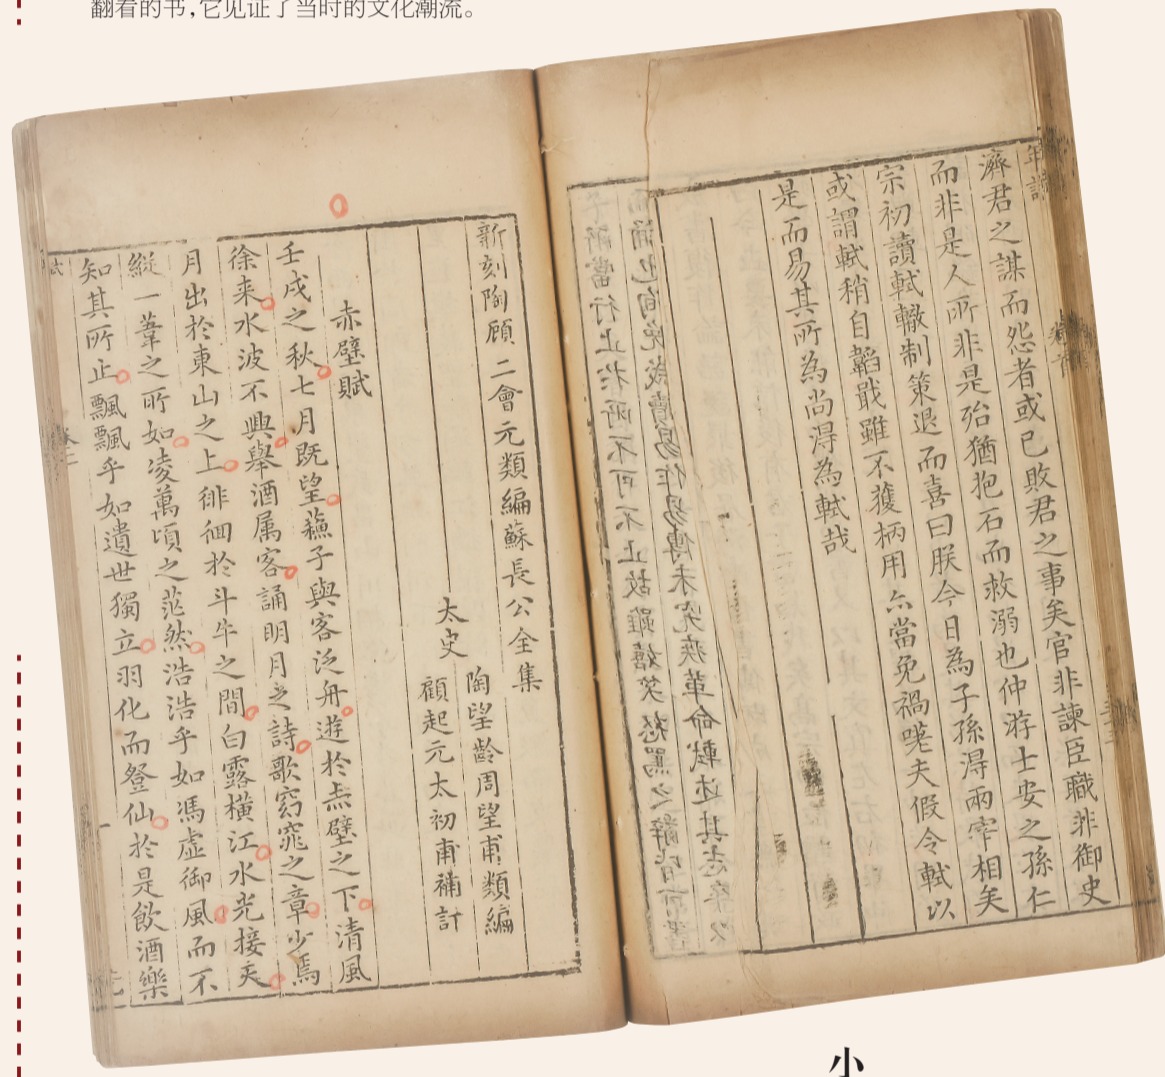 翻看的书，它见证了当时的文化潮流。
濟君之謀而怨者或已敗君之事矣官非諫臣職非御史
而非是人所非是殆猶抱石而救溺也仲游士安之孫仁
宗初讀軾轍制策退而喜曰朕今日為子孫淂兩宰相矣
或謂軾稍自韜戢雖不獲柄用亦當免禍嗟夫假令軾以
是而易其所為尚淂為軾哉
新刻陶顧二會元類編蘇長公全集
太史
陶望齡周望甫類編
顧起元太初甫補訂
赤壁賦
壬戌之秋七月既望蘓子與客泛舟遊於赤壁之下清風
徐来水波不興舉酒属客誦明月之詩歌窈窕之章少焉
月出於東山之上徘徊於斗牛之間白露横江水光接天
縱一葦之所如凌萬頃之茫然浩浩乎如馮虚御風而不
知其所止飄飄乎如遺世獨立羽化而登仙於是飲酒樂
小